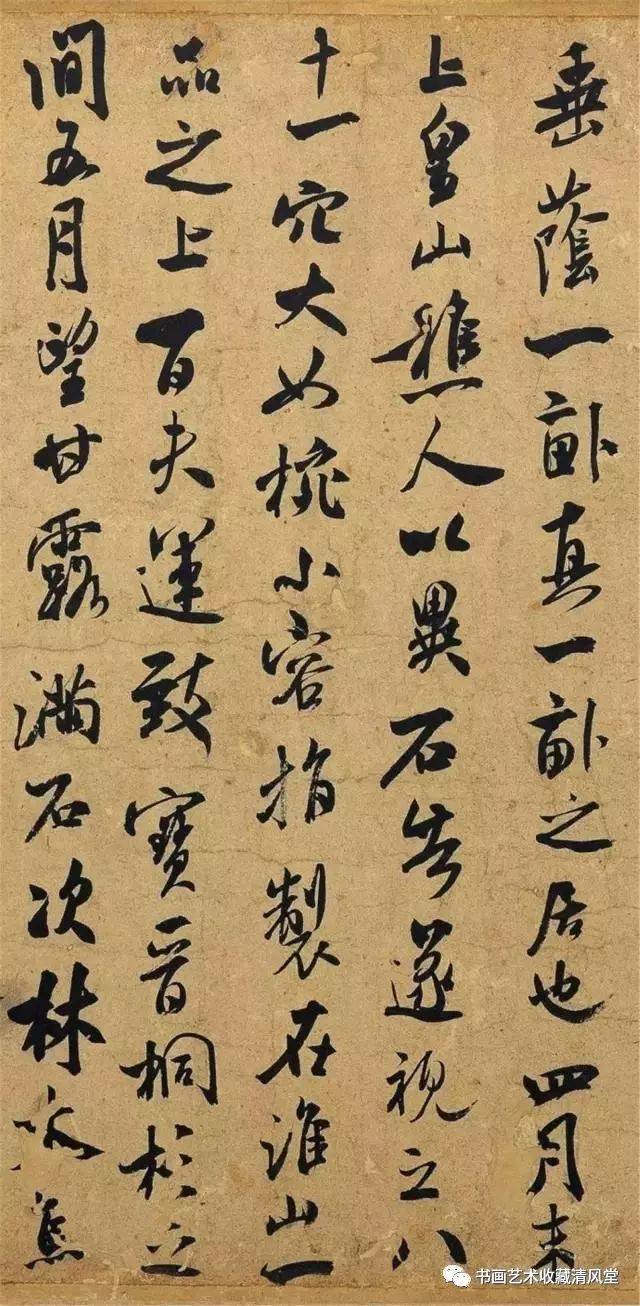 垂蔭一畝真一畝之居也四月末
上皇山樵人以異石告遂視之八
十一穴大如椀小容指製在淮山一
品之上百夫運致寶晉桐杉之
間五月望甘露滿石次林蕉
书画艺术收藏清风堂